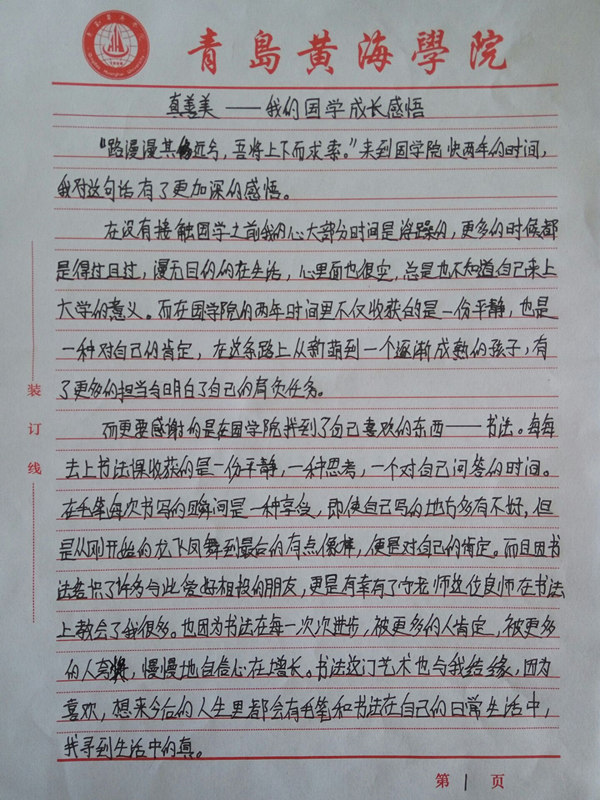 青島黄海學院
真善美——我的国学成长感悟
"路漫漫其修远兮，吾将上下而求索。"来到国学院快两年的时间，
我对这句话有了更加深的感悟。
在没有接触国学之前我的心大部分时间是浮躁的，更多的时候都
是得过且过，漫无目的的在生活，心里面也很空，总是也不知道自己来上
大学的意义。而在国学院的两年时间里不仅收获的是一份平静，也是
一种对自己的肯定，在这条路上从新萌到一个逐渐成熟的孩子，有
了更多的担当与明白了自己的肩负任务。
而更要感谢的是在国学院找到了自己喜欢的东西——书法。每每
去上书法课收获的是一份平静，一种思考，一个对自己问答的时间。
在毛笔每次书写的瞬间是一种享受，即使自己写的地方多有不好，但
是从刚开始的龙飞凤舞到最后的有点像样，便是对自己的肯定。而且因书
法结识了许多与此爱好相投的朋友，更是有幸有了守老师这位良师在书法
上教会了我很多。也因为书法在每一次次进步，被更多的人肯定，被更多
的人夸奖，慢慢地自信心在增长。书法这门艺术也与我结缘，因为
喜欢，想来今后的人生里都会有毛笔和书法在自己的日常生活中，
我寻到生活中的真。
装
订
线
第 1 页